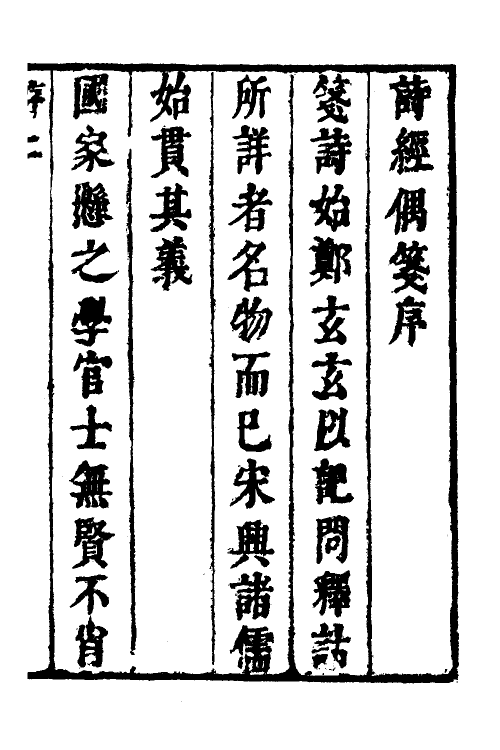 詩經偶箋序
箋詩始鄭玄玄以記問釋詁
所詳者名物而已宋興諸儒
始貫其義
國家懸之學官士無賢不肖
序二